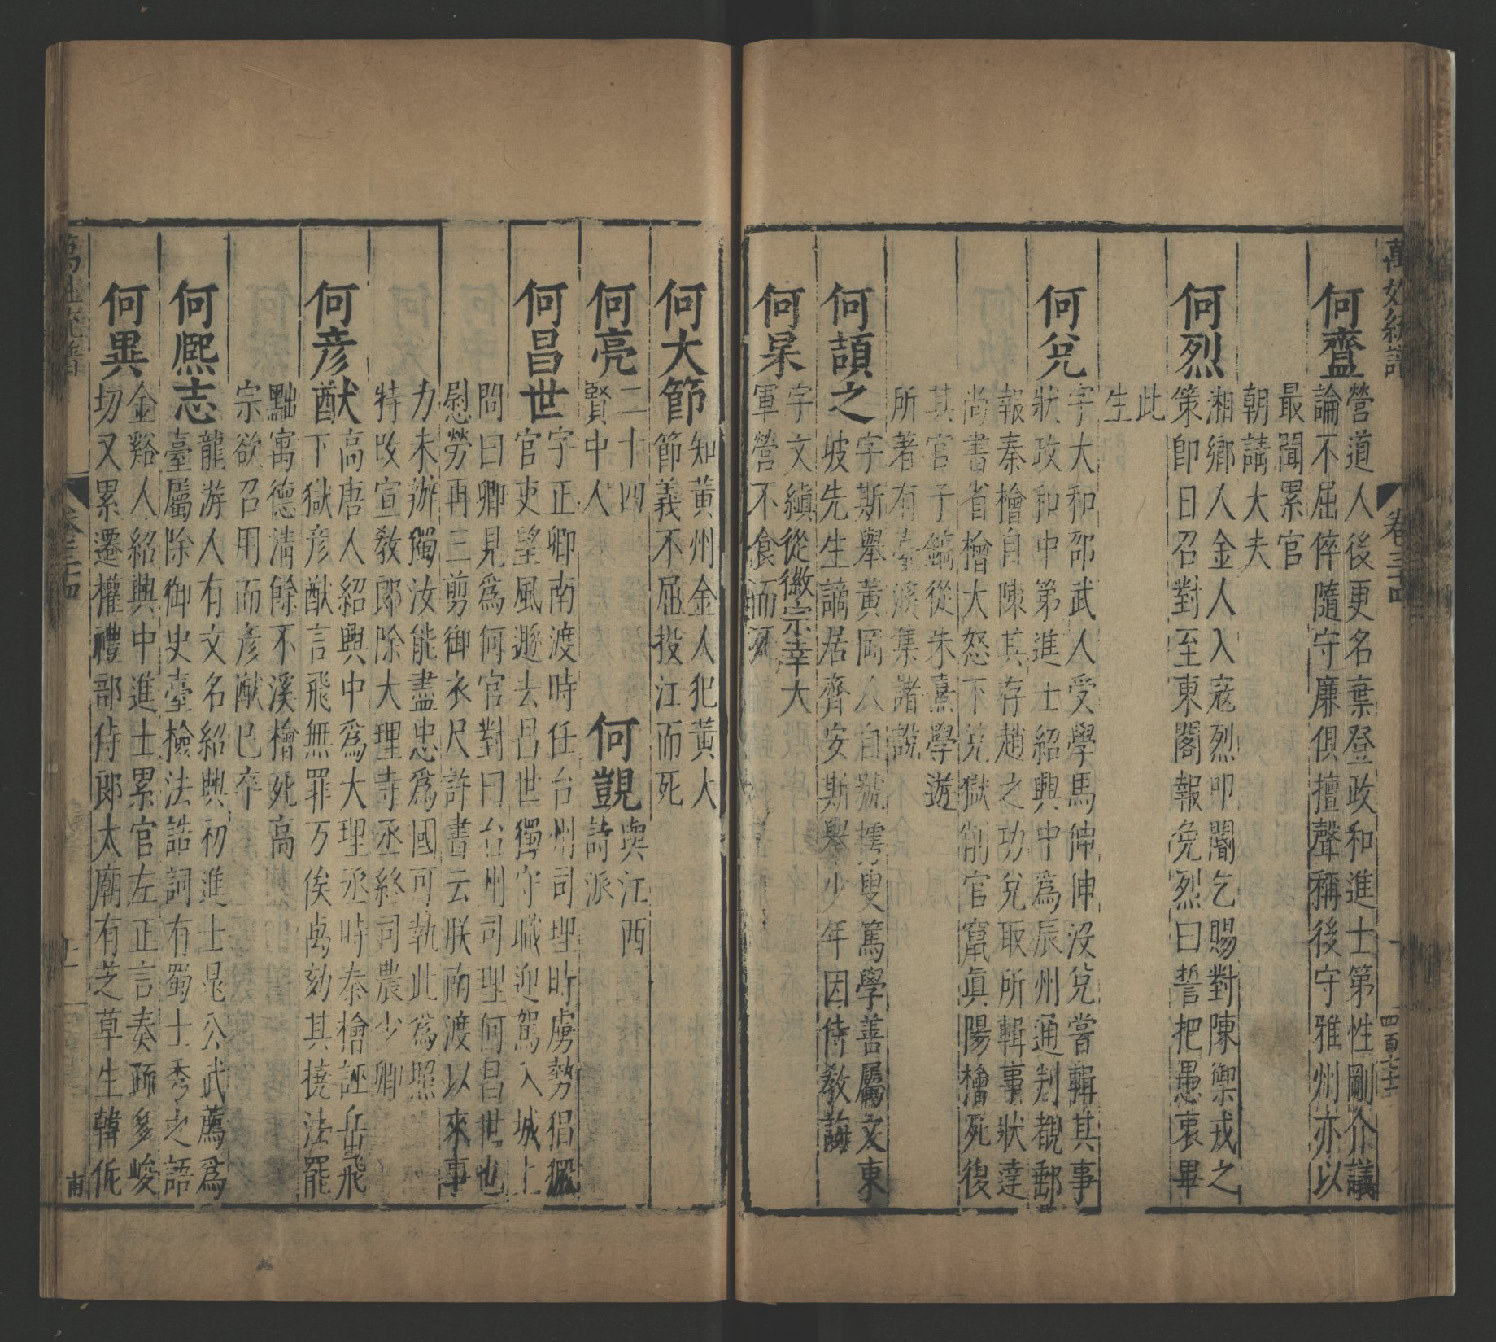 萬姓統譜
卷三十四
何𪗋
營道人後更名棄登政和進士第性剛介議
論不屈倅隨守廉俱擅聲稱後守雅州亦以
最聞累官
朝請大夫
何烈
湘鄉人金人入寇烈叩閽乞賜對陳禦戎之
策即日召對至東閣報免烈曰誓把愚衷畢
此
生
何兌
字大和邵武人受學馬伸伸没兌嘗輯其事
狀政和中第進士紹興中為辰州通判觀郵
報秦檜自陳其存趙之功兌取所輯事狀達
尚書省檜大怒下兌獄削官竄真陽檜死復
其官子鎬從朱熹學遊
所著有臺溪集諸說
何頡之
字斯舉黃岡人自號樗叟篤學善屬文東
坡先生謫居齊安斯舉少年因侍教誨
何㮚
字文縝從徽宗幸大
軍營不食而死
何大節
知黃州金人犯黃大
節節義不屈投江而死
何亮
二十四
賢中人
何覬
與江西
詩派
何昌世
字正卿南渡時任台州司理時虜勢猖獗
官吏望風遯去昌世獨守職迎駕入城上
問曰卿見爲何官對曰台州司理何昌世也
慰勞再三剪御衣尺許書云朕南渡以來事
力未辦獨汝能盡忠爲國可執此爲照
特改宣教郎除大理寺丞終司農少卿
何彦猷
高唐人紹興中爲大理丞時秦檜誣岳飛
下獄彦猷言飛無罪万俟卨劾其撓法罷
黜寓德清餘不溪檜死高
宗欲召用而彦猷已卒
何熈志
龍游人有文名紹興初進士晁公武薦爲
臺屬除御史臺檢法誥詞有蜀士秀之語
何異
金谿人紹興中進士累官左正言奏疏多峻
切又累遷權禮部侍郎太廟有芝草生韓侂
萬姓統譜
卷三十四